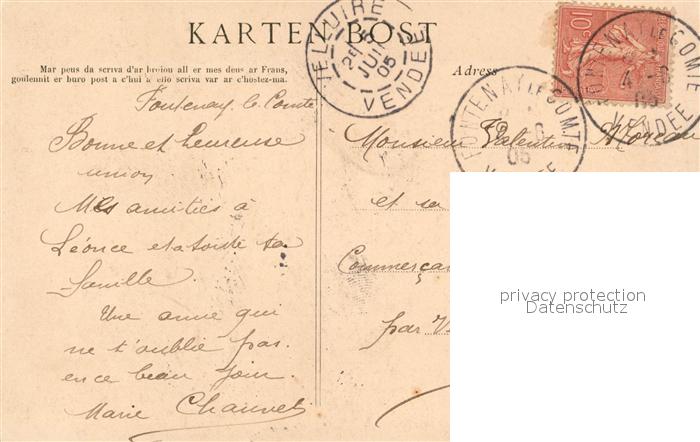 KARTEN BOST
Mar peus da scriva d'ar broiou all er mes deus ar Frans,
goulennit er buro post a c'hui a ello scriva var ar c'hostez-ma.
Adress
VELLUIRE
25
JUIN
05
VENDÉE
10c
FONTENAY LE COMTE
05
VENDÉE
FONTENAY LE COMTE
4
05
VENDEE
Fontenay le Comte
Bonne et heureuse
union
Mes amitiés à
Léonce et a toute ta
famille
Une amie qui
ne t'oublie pas
en ce beau jour.
Marie Chauvet
Monsieur Valentin Moreau
et sa
Commerçan
par V
privacy protection
Datenschutz